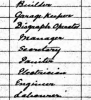 Builder
Garage Keeper
Dictograph Operator
Manager
Secretary
Painter
Electrician
Engineer
Laborer